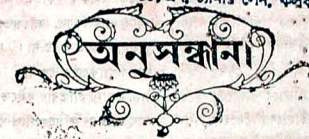 অনুসন্ধান।